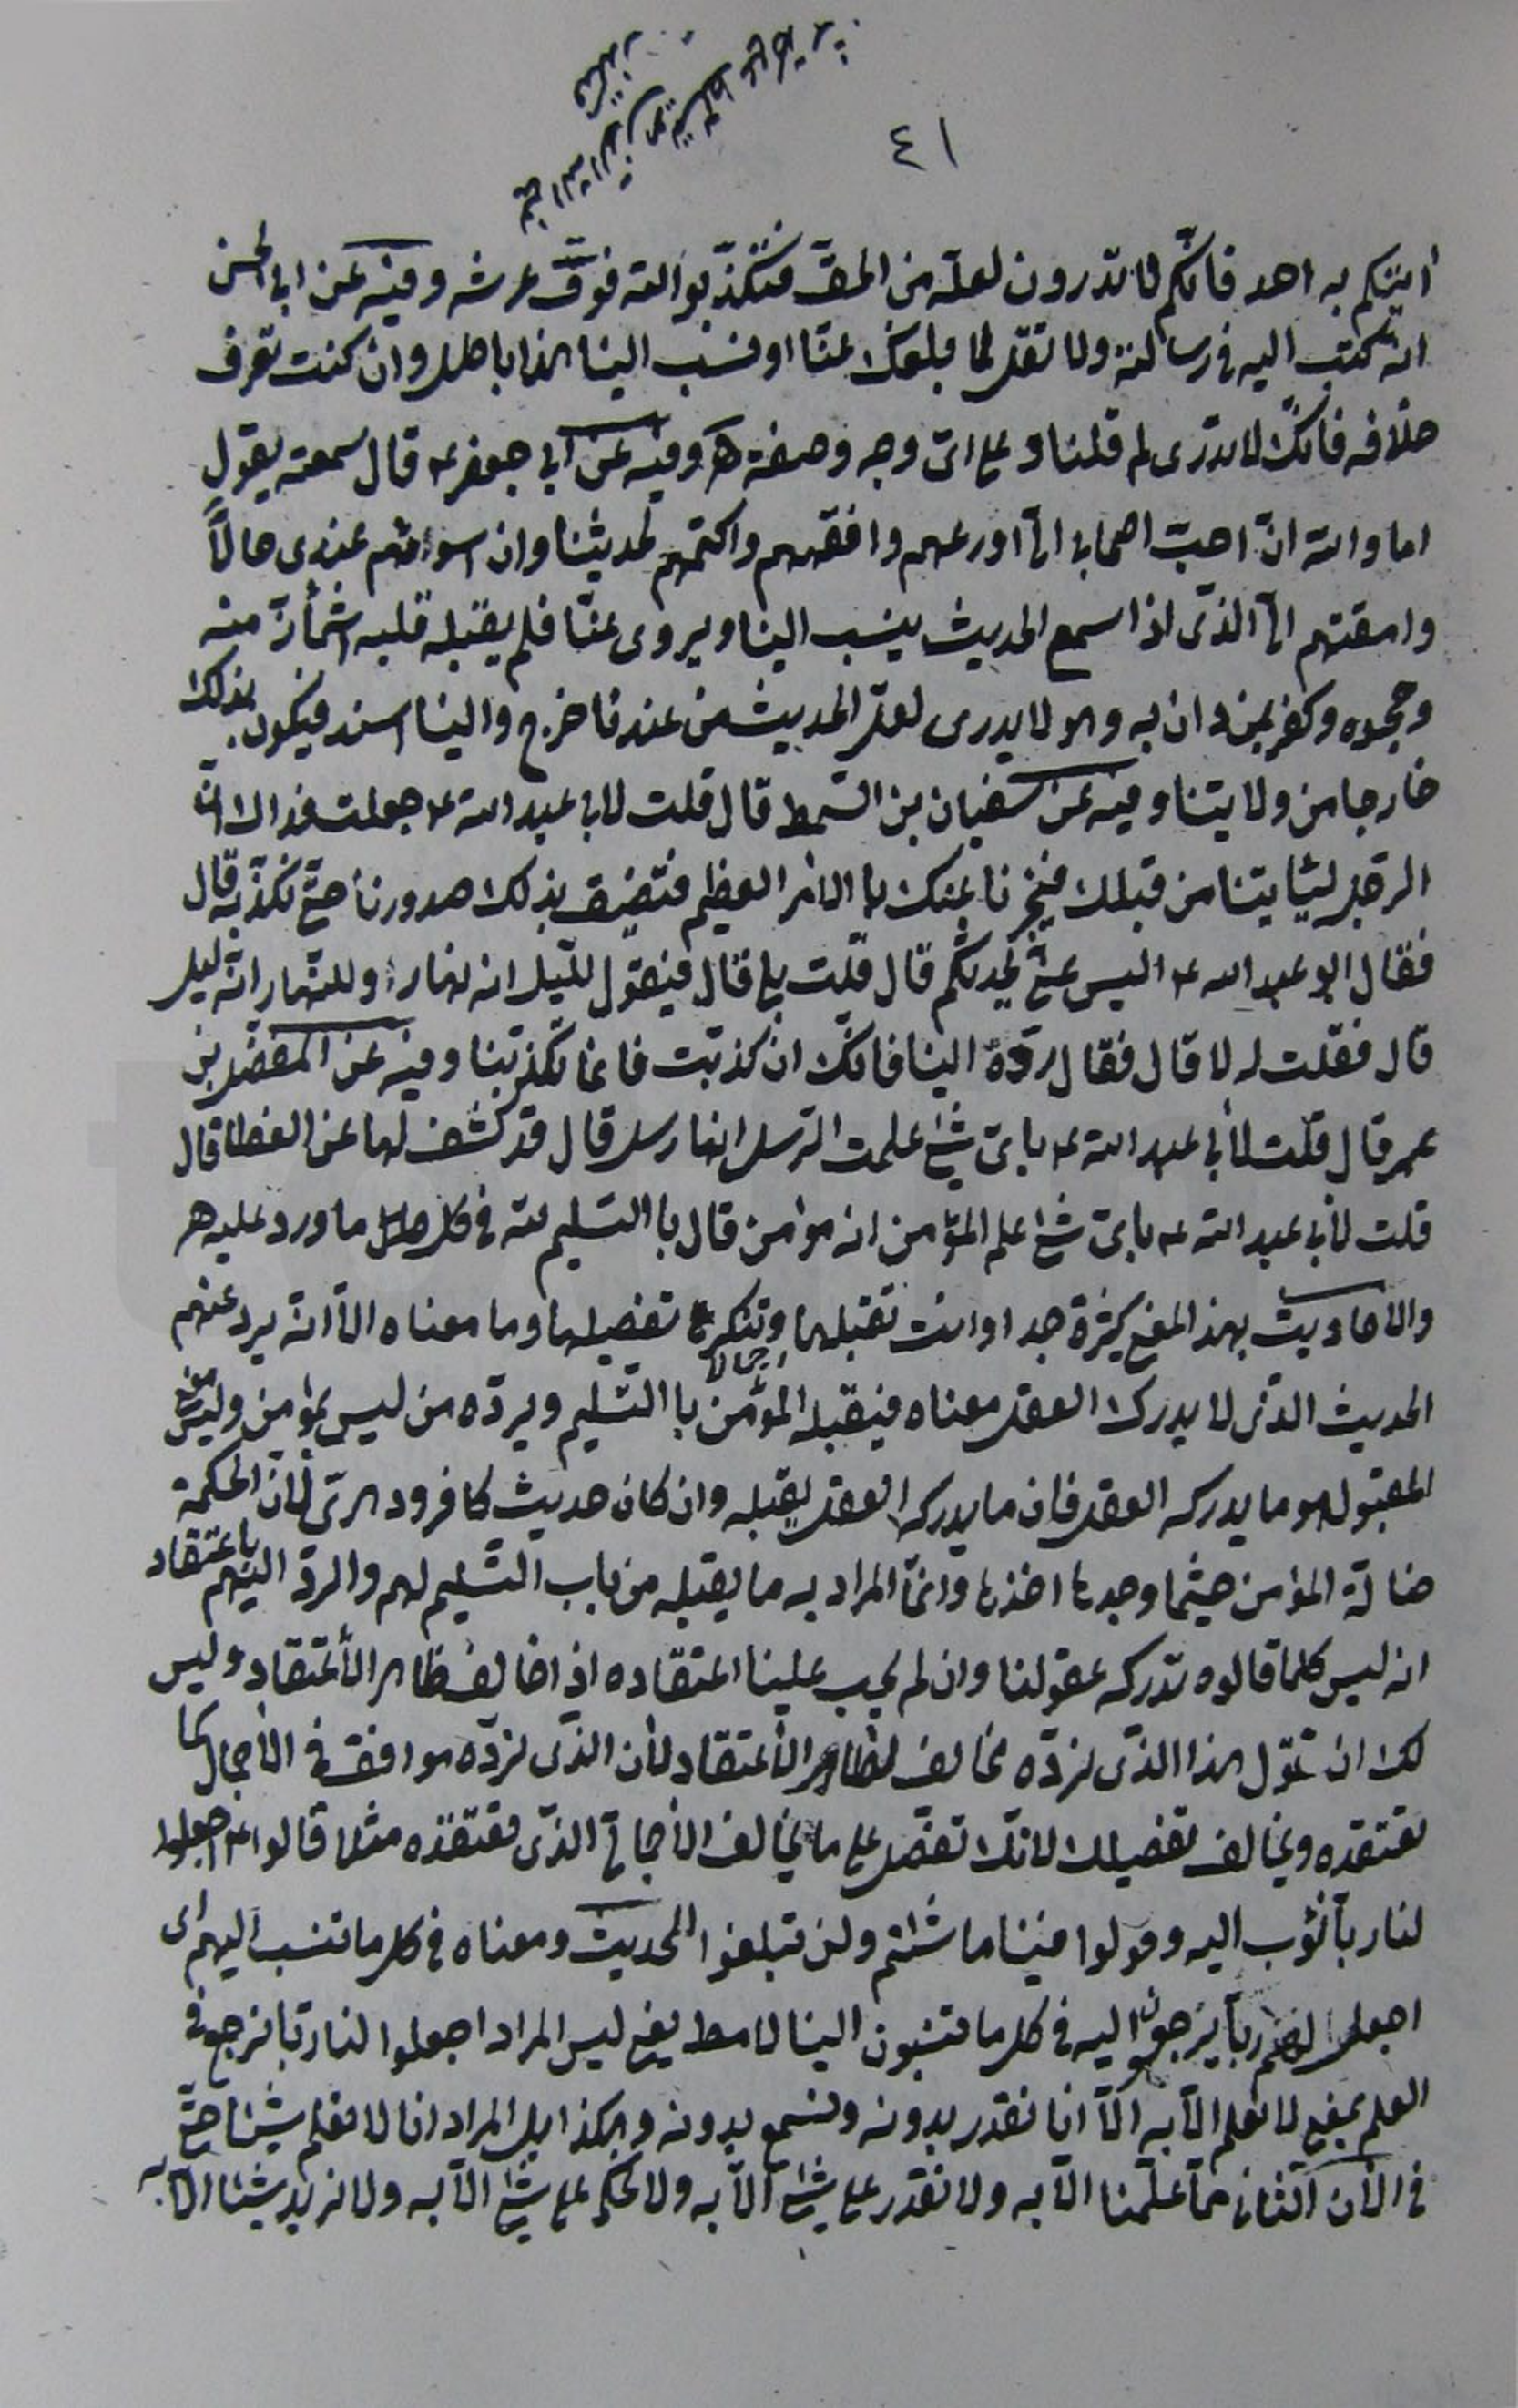 ٤١
أتيكم به احد فانكم لا تدرون لعله من الحق فتكذبوا الله فوق عرشه وفيه عن ابي الحسن
انه كتب اليه في رسالته ولا تقل لما بلغك عنا او نسب الينا هذا باطل وان كنت تعرف
خلافه فانك لا تدري لم قلنا وعلى اي وجه وصفة هـ وفيه عن ابي جعفر ع قال سمعته يقول
اما والله ان احب اصحابي الي اورعهم وافقههم واكتمهم لحديثنا وان اسوائهم عندي حالاً
وامقتهم الي الذي اذا سمع الحديث ينسب الينا ويروى عنا فلم يقبله قلبه اشمأز منه
وجحده وكفر بمن دان به وهو لا يدري لعل الحديث من عندنا خرج والينا اسند فيكون بذلك
خارجا من ولايتنا وفيه عن سفيان بن السمط قال قلت لابي عبد الله ع جعلت فداك ان
الرجل ليأتينا من قبلك فيخبرنا عنك با الامر العظيم فتضيق بذلك صدورنا حتى نكذبه قال
فقال ابو عبد الله ع اليس عني يحدثكم قال قلت بلى قال فيقول لليل انه نهار وللنهار انه ليل
قال فقلت له لا قال فقال رده الينا فانك ان كذبت فانما تكذبنا وفيه عن المفضل بن
عمر قال قلت لأبي عبد الله ع باي شئ علمت الرسل انها رسل قال قد كشف لها عن الغطا قال
قلت لأبي عبد الله ع باي شئ علم المؤمن انه مؤمن قال با التسليم لله في كل ما ورد عليه هـ
والأحاديث بهذا المعنى كثيرة جدا وانت تقبلها اجمالا وتنكر تفصيلها وما معناه الا انه يرد عنهم
الحديث الذي لا يدرك العقل معناه فيقبله المؤمن با التسليم ويرده من ليس بمؤمن وليس معنى
المقبول هو ما يدركه العقل فان ما يدركه العقل يقبله وان كان حديث كافر ودهري لأن الحكمة
ضالة المؤمن حيثما وجدها اخذها وانما المراد به ما يقبله من باب التسليم لهم والرد اليهم باعتقاد
انه ليس كلما قالوه تدركه عقولنا وان لم يجب علينا اعتقاده اذا خالف ظاهر الأعتقاد وليس
لك ان تقول هذا الذي نرده مخالف لظاهر الأعتقاد لأن الذي نرده موافق في الأجمال لما
نعتقده ويخالف تفصيلك لانك تفصل على ما يخالف الأجمالي الذي تعتقده مثلا قالوا ع اجعلوا
لنا رباً نؤب اليه وقولوا فينا ما شئتم ولن تبلغوا الحديث ومعناه في كل ما تنسب اليهم اي
اجعلوا لهم رباً يرجعون اليه في كل ما تنسبون الينا لا مط يعني ليس المراد اجعلوا لنا ربا نرجع في
العلم بمعنى لا نعلم الا به الا انا نقدر بدونه ونسمع بدونه وهكذا بل المراد انا لا نعلم شيئا حتى
في الأن الثاني مما علمنا الا به ولا نقدر على شئ الا به ولا نحكم على شئ الا به ولا نريد شيئا الا به